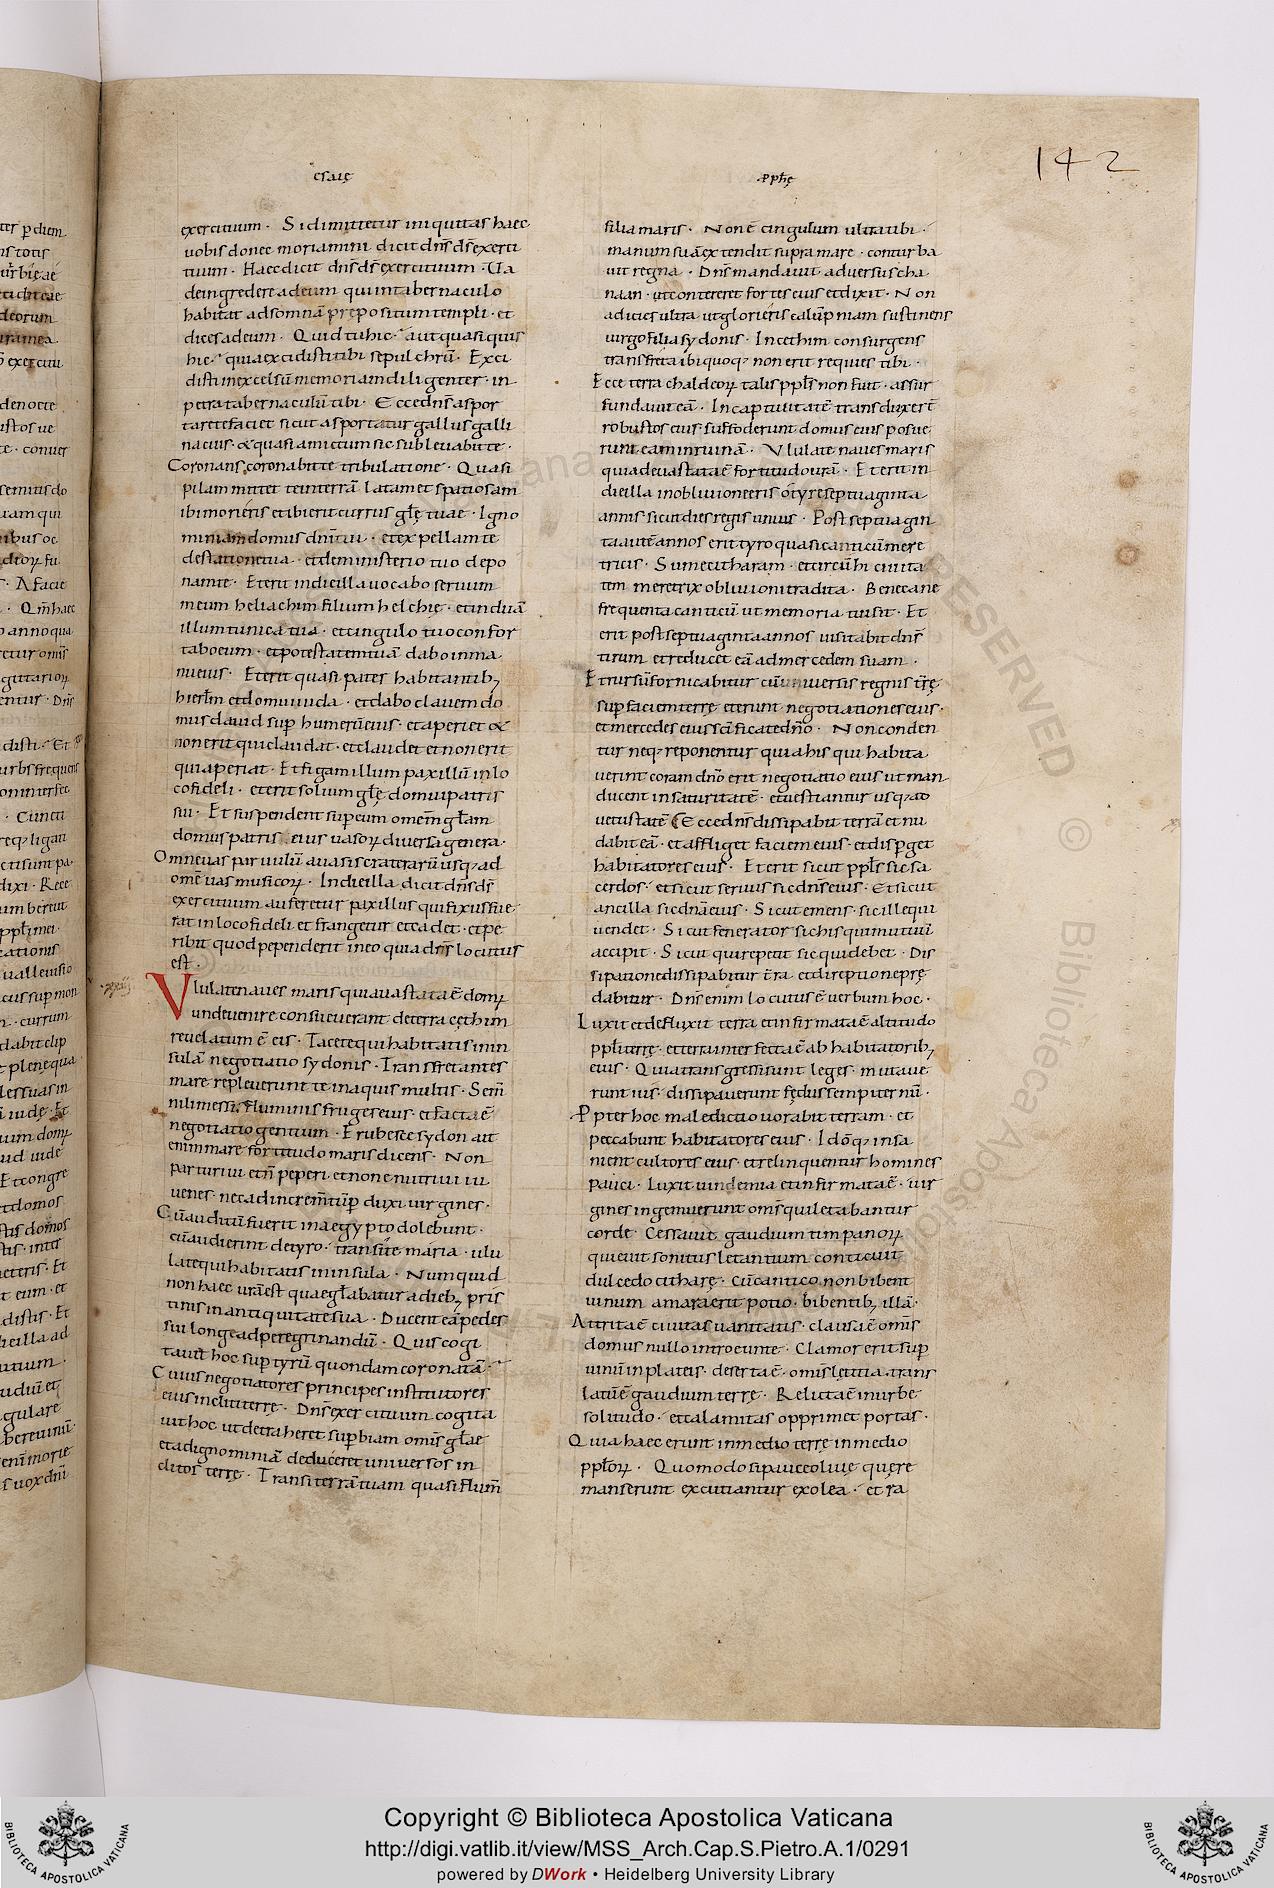 esaię
pphę
142
exercituum · Si dimittetur iniquitas haec
vobis donec moriamini dicit dn̄s ds̄ exerci
tuum · Haec dicit dn̄s ds̄ exercituum · Ua
de ingredere ad eum qui in tabernaculo
habitat ad somnā prepositum templi · et
dices ad eum · Quid tu hic · aut quasi quis
hic · quia excidisti tibi sepulchrū · Exci
disti in excelsū memoriam diligenter · in
petra tabernaculū tibi · Ecce dn̄s aspor
tare te faciet sicut asportatur gallus galli
nacius · & quasi amictum sic sublevabit te ·
Coronans coronabit te tribulatione · Quasi
pilam mittet te in terrā latam et spatiosam
ibi morieris et ibi erit currus glę tuae · Igno
miniam domus dn̄i tui · et expellam te
de statione tua · et de ministerio tuo depo
nam te · Et erit in die illa vocabo servum
meum heliachim filium helchię · et induā
illum tunica tua · et cingulo tuo confor
tabo eum · et potestatem tuā dabo in ma
nu eius · Et erit quasi pater habitantib;
hierlm̄ et domui iuda · et dabo clavem do
mus david sup humerū eius · et aperiet &
non erit qui claudat · et claudet et non erit
qui aperiat · Et figam illum paxillū in lo
co fideli · et erit solium glę domui patris
sui · Et suspendent sup eum omem̄ glam
domus patris eius vasorꝝ diversa genera ·
Omne vas parvulū a vasis craterarū usq; ad
omē vas musicorꝝ · In die illa dicit dn̄s ds̄
exercituum auferetur paxillus qui fixus fue
rat in loco fideli · et frangetur et cadet · et pe
ribit quod pependerit in eo quia dn̄s locutus
est ·
Ululate naves maris quia vastata ē domꝰ
unde venire consueverant de terra cęthim
revelatum ē eis · Tacete qui habitatis in in
sulā negotiatio sydonis · Transfretantes
mare repleverunt te in aquis multis · Sem̄
nili messis fluminis fruges eius · et facta ē
negotiatio gentium · Erubesce sydon ait
enim mare fortitudo maris dicens · Non
parturivi et n̄ peperi · et non enutrivi iu
venes · nec ad increm̄tū pduxi virgines ·
Cū auditū fuerit in aegypto dolebunt ·
cū audierint de tyro · transite maria · ulu
late qui habitatis in insula · Numquid
non haec urā est quae glabatur a dieb; pris
tinis in antiquitate sua · Ducent eā pedes
sui longe ad peregrinandū · Quis cogi
tavit hoc sup tyrū quondam coronatā ·
Cuius negotiatores principes institutores
eius incliti terrę · Dn̄s exercituum cogita
vit hoc ut detraheret supbiam omis̄ glae
et ad ignominiā deduceret universos in
clitos terrę · Transi terrā tuam quasi flum̄
filia maris · Non ē cingulum ultra tibi ·
manum suā extendit supra mare · conturba
vit regna · Dn̄s mandavit adversus cha
naan · ut contereret fortes eius et dixit · Non
adicies ultra ut glorieris calūpniam sustinens
virgo filia sydonis · In cethim consurgens
transfreta ibi quoq; non erit requies tibi ·
Ecce terra chaldeorꝝ talis ppls non fuit · assur
fundavit eā · In captivitatē transduxert̄
robustos eius · suffoderunt domus eius posue
runt eam in ruinā · Ululate naves maris
quia devastata ē fortitudo urā · Et erit in
die illa in oblivione eris o tyre septuaginta
annis sicut dies regis unius · Post septuagin
ta autē annos erit tyro quasi canticū mere
tricis · Sume citharam · et circūhi civita
tem meretrix oblivioni tradita · Bene cane
frequenta canticū ut memoria tui sit · Et
erit post septuaginta annos visitabit dn̄s
tirum et reducet eā ad mercedem suam ·
Et rursū fornicabitur cū universis regnis trę
sup faciem terrę et erunt negotiationes eius ·
et mercedes eius scificate dn̄o · Non conden
tur neq; reponentur quia his qui habita
verint coram dn̄o erit negotiatio eius ut man
ducent in saturitatē · et vestiantur usq; ad
vetustatē Ecce dn̄s dissipabit terrā et nu
dabit eā · et affliget faciem eius · et disperget
habitatores eius · Et erit sicut ppls sic sa
cerdos · et sicut servus sic dn̄s eius · Et sicut
ancilla sic dn̄a eius · Sicut emens · sic ille qui
vendet · Sicut fenerator sic his qui mutuū
accipit · Sicut qui repetit sic qui debet · Dis
sipatione dissipabitur tr̄a et direptione prę
dabitur · Dn̄s enim locutus ē verbum hoc ·
Luxit et defluxit terra et infirmata ē altitudo
ppli terrę · et terra interfecta ē ab habitatorib;
eius · Quia transgressi sunt leges · mutave
runt ius · dissipaverunt fędus sempiternū ·
Ppter hoc maledictio vorabit terram · et
peccabunt habitatores eius · Idōq; insa
nient cultores eius · et relinquentur homines
pauci · Luxit vindemia et infirmata ē · vir
gines ingemuerunt omes̄ qui letabantur
corde · Cessavit gaudium timpanorꝝ
quievit sonitus letantium conticuit
dulcedo citharę · Cū cantico non bibent
vinum amara erit potio · bibentib; illā ·
Attrita ē civitas vanitatis · clausa ē omis̄
domus nullo introeunte · Clamor erit sup
vinū in plateis · deserta ē · omis̄ letitia trans
latū ē gaudium terrę · Relicta ē in urbe
solitudo · et calamitas opprimet portas ·
Quia haec erunt in medio terrę in medio
pplorꝝ · Quomodo si paucę olivę quę re
manserunt excutiantur ex olea · et ra
Copyright © Biblioteca Apostolica Vaticana
http://digi.vatlib.it/view/MSS_Arch.Cap.S.Pietro.A.1/0291
powered by DWork • Heidelberg University Library
BIBLIOTECA APOSTOLICA VATICANA
BIBLIOTECA APOSTOLICA VATICANA